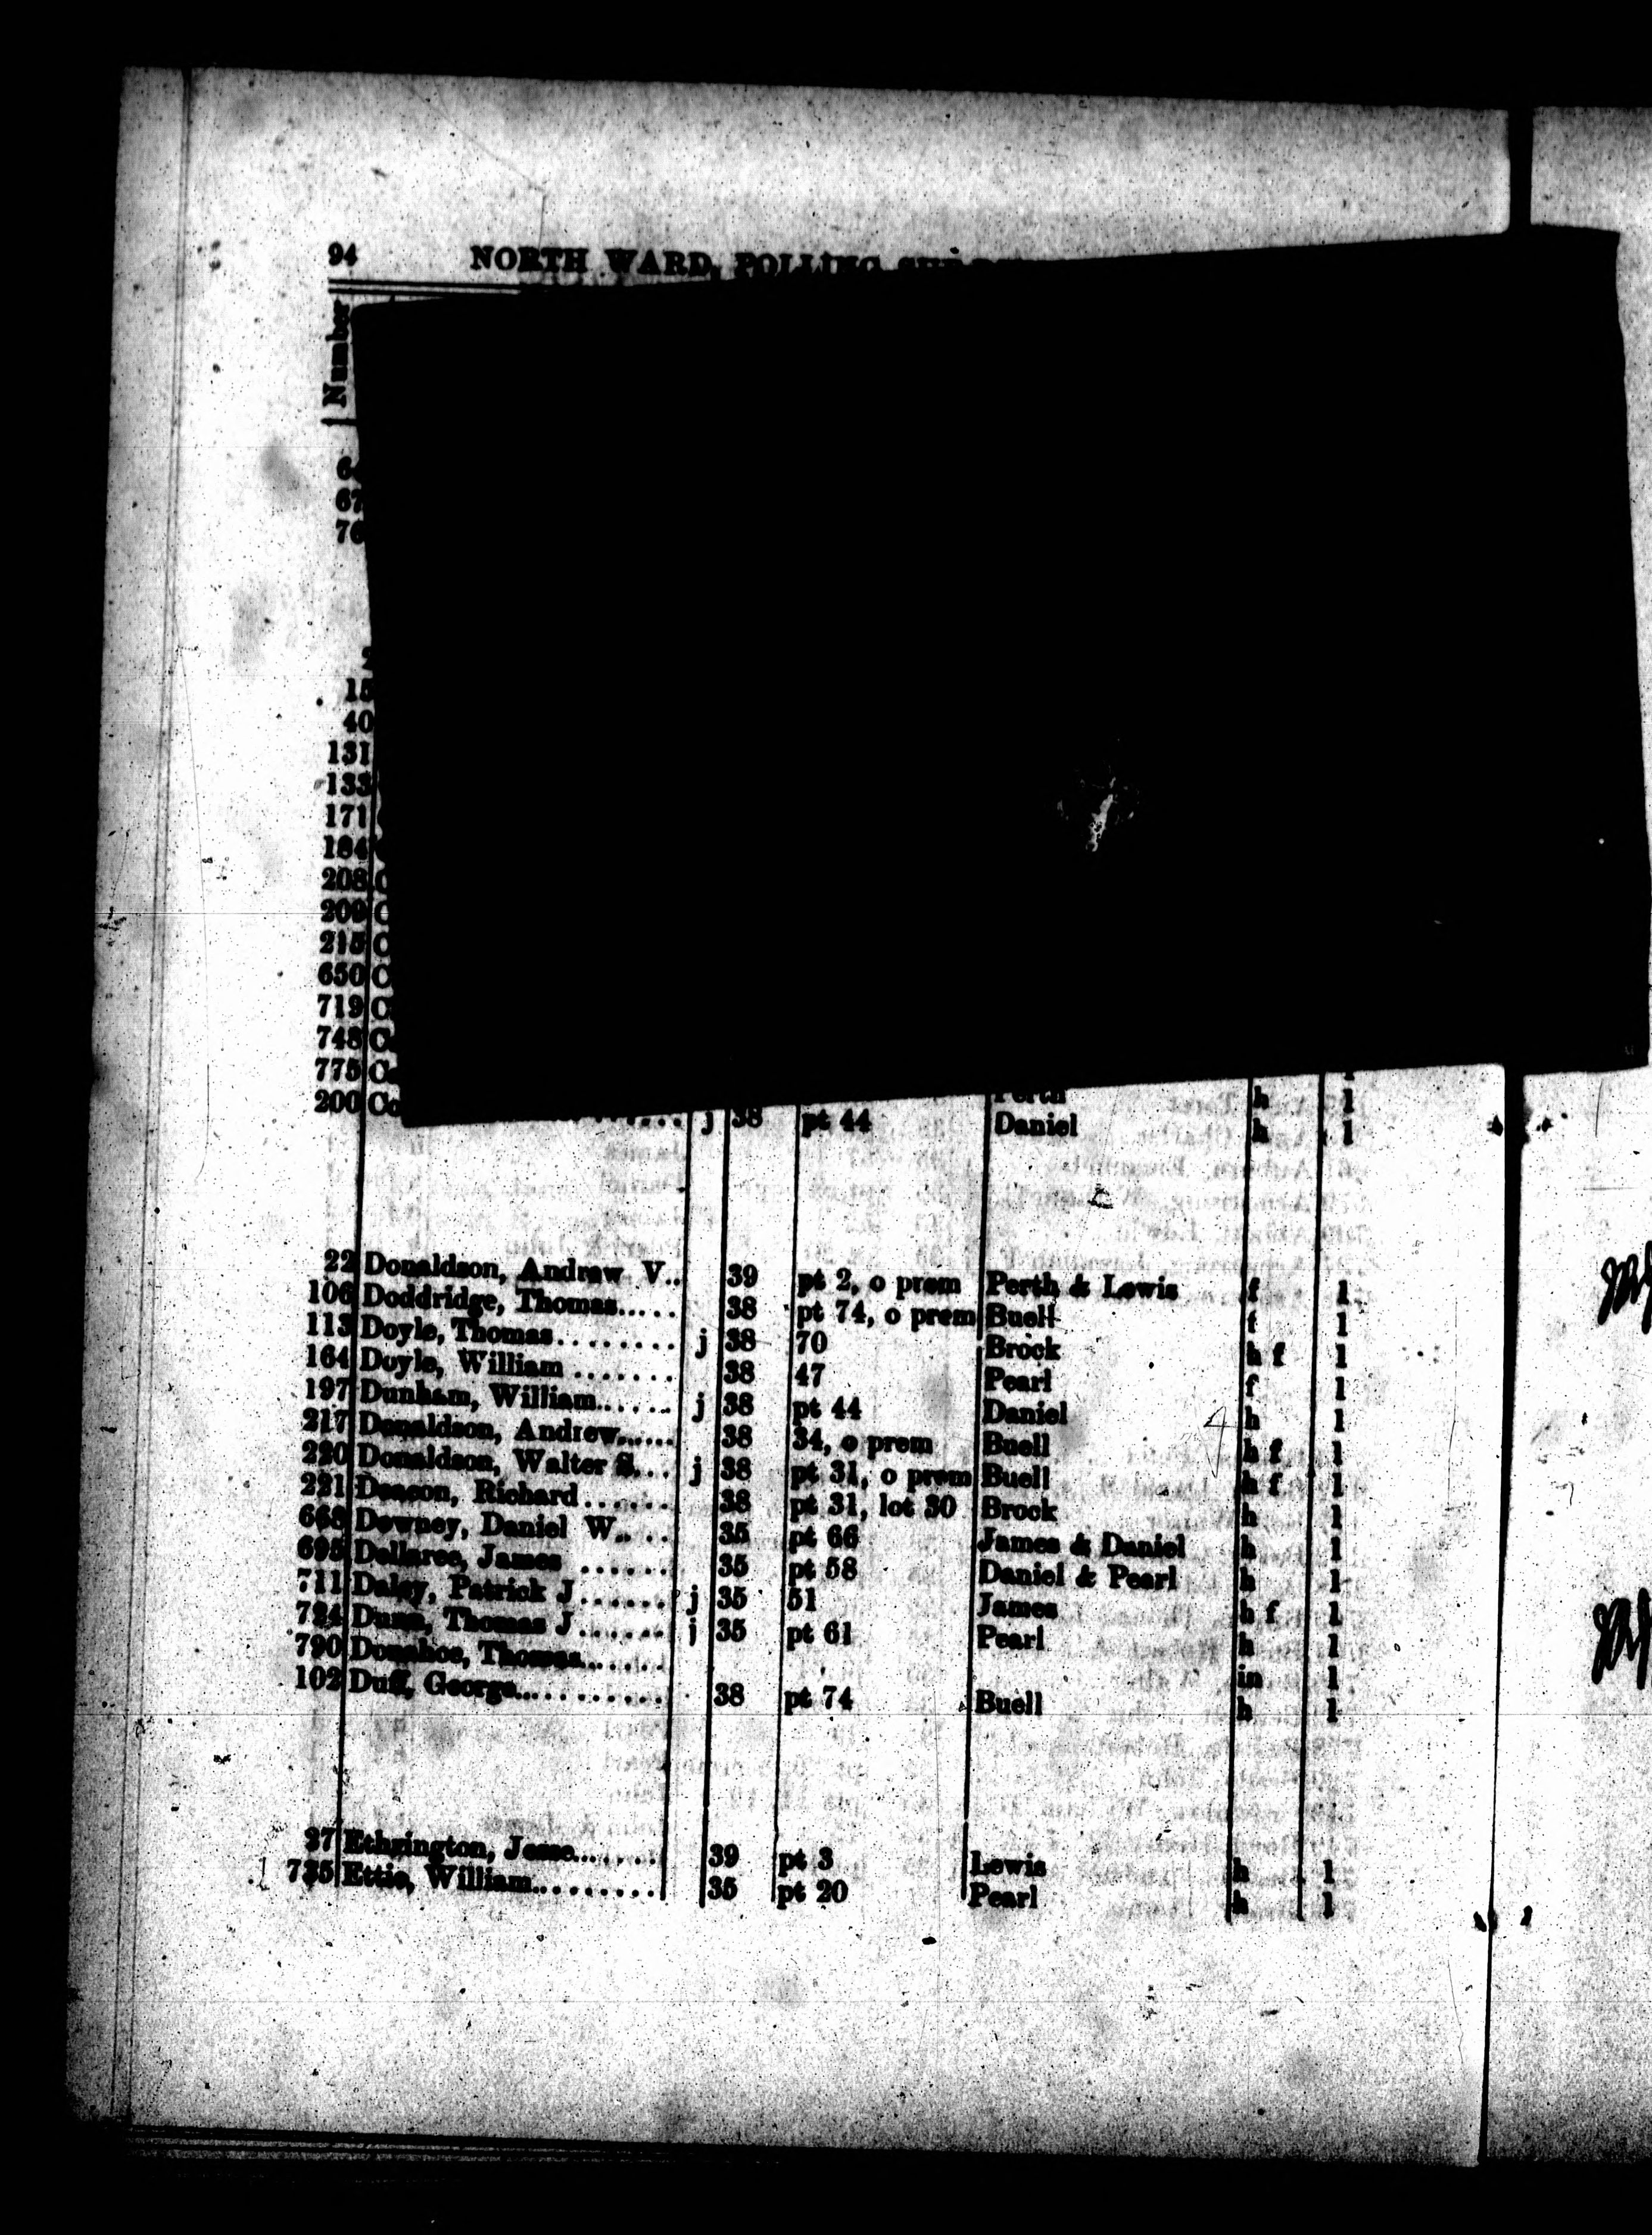 94 NORTH WARD, POLLING
Number
67
76
15
40
131
133
171
184
208 C
209 C
215 C
650 C
719 C
748 C
775 C
Perth h 1
200 Co j 38 pt 44 Daniel h 1
22 Donaldson, Andrew V.. 39 pt 2, o prem Perth & Lewis f 1
106 Doddridge, Thomas..... 38 pt 74, o prem Buell f 1
113 Doyle, Thomas......... j 38 70 Brock h f 1
164 Doyle, William ....... 38 47 Pearl f 1
197 Dunham, William...... j 38 pt 44 Daniel h 1
217 Donaldson, Andrew..... 38 34, o prem Buell h f 1
220 Donaldson, Walter S... j 38 pt 31, o prem Buell h f 1
221 Deacon, Richard ...... 38 pt 31, lot 30 Brock h 1
668 Downey, Daniel W.... 35 pt 66 James & Daniel h 1
695 Dellaree, James ...... 35 pt 58 Daniel & Pearl h 1
711 Daley, Patrick J ...... j 35 51 James h f 1
724 Dunn, Thomas J ...... j 35 pt 61 Pearl h 1
790 Donahoe, Thomas...... in 1
102 Duff, George........... 38 pt 74 Buell h 1
27 Ethrington, Jesse....... 39 pt 3 Lewis h 1
735 Ettie, William.......... 35 pt 20 Pearl h 1